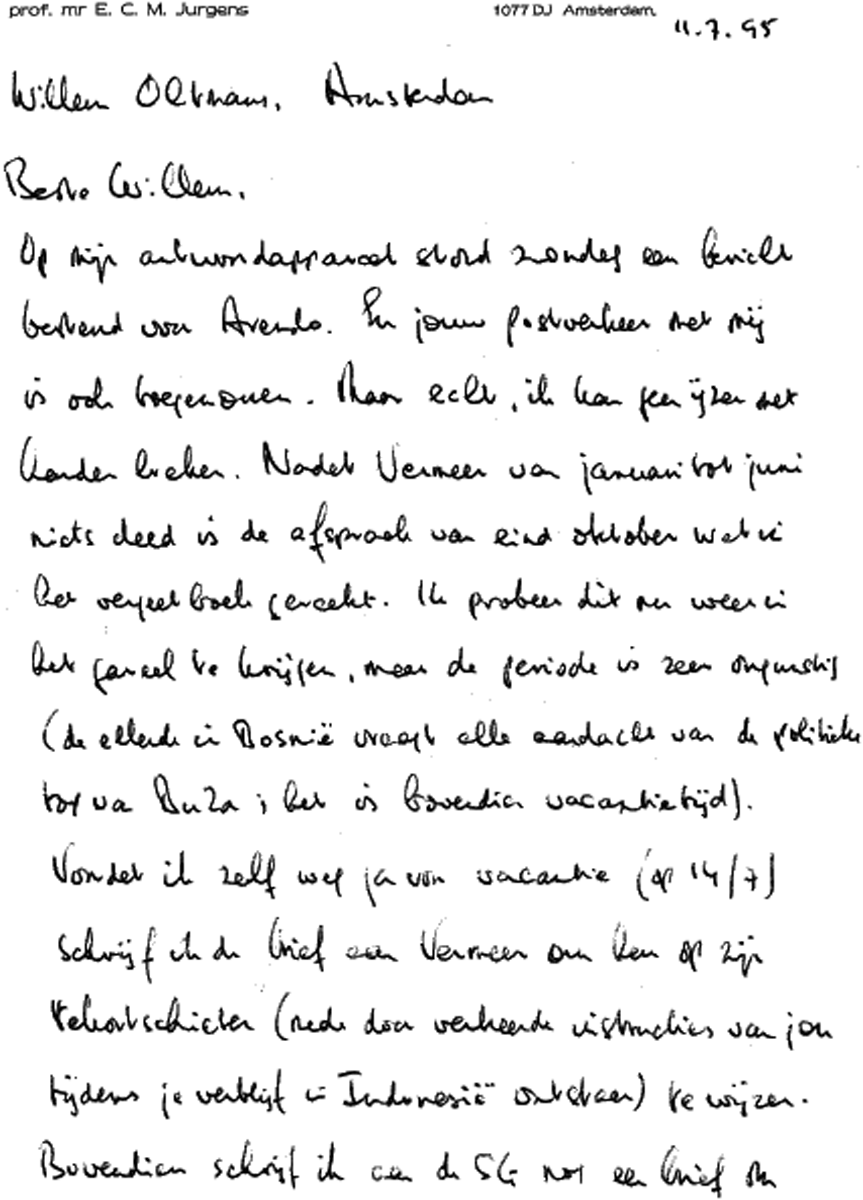 prof. mr E. C. M. Jurgens 1077 DJ Amsterdam.
11.7.95
Willem Oltmans. Amsterdam
Beste Willem.
Op mijn antwoordapparaat stond zondag een bericht
bestemd voor Arendo. En jouw postverkeer met mij
is ook toegenomen. Maar echt, ik kan geen ijzer met
handen breken. Nadat Vermeer van januari tot juni
niets deed is de afspraak van eind oktober wat in
het vergeetboek geraakt. Ik probeer dit nu weer in
het gareel te krijgen, maar de periode is zeer ongunstig
(de ellende in Bosnië vraagt alle aandacht van de politieke
top van BuZa; het is bovendien vacantietijd).
Voordat ik zelf weg ga voor vacantie (op 14/7)
schrijf ik de brief aan Vermeer om hem op zijn
tekortschieten (mede door verkeerde instructies van jou
tijdens je verblijf in Indonesië ontstaan) te wijzen.
Bovendien schrijf ik aan de SG nog een brief om